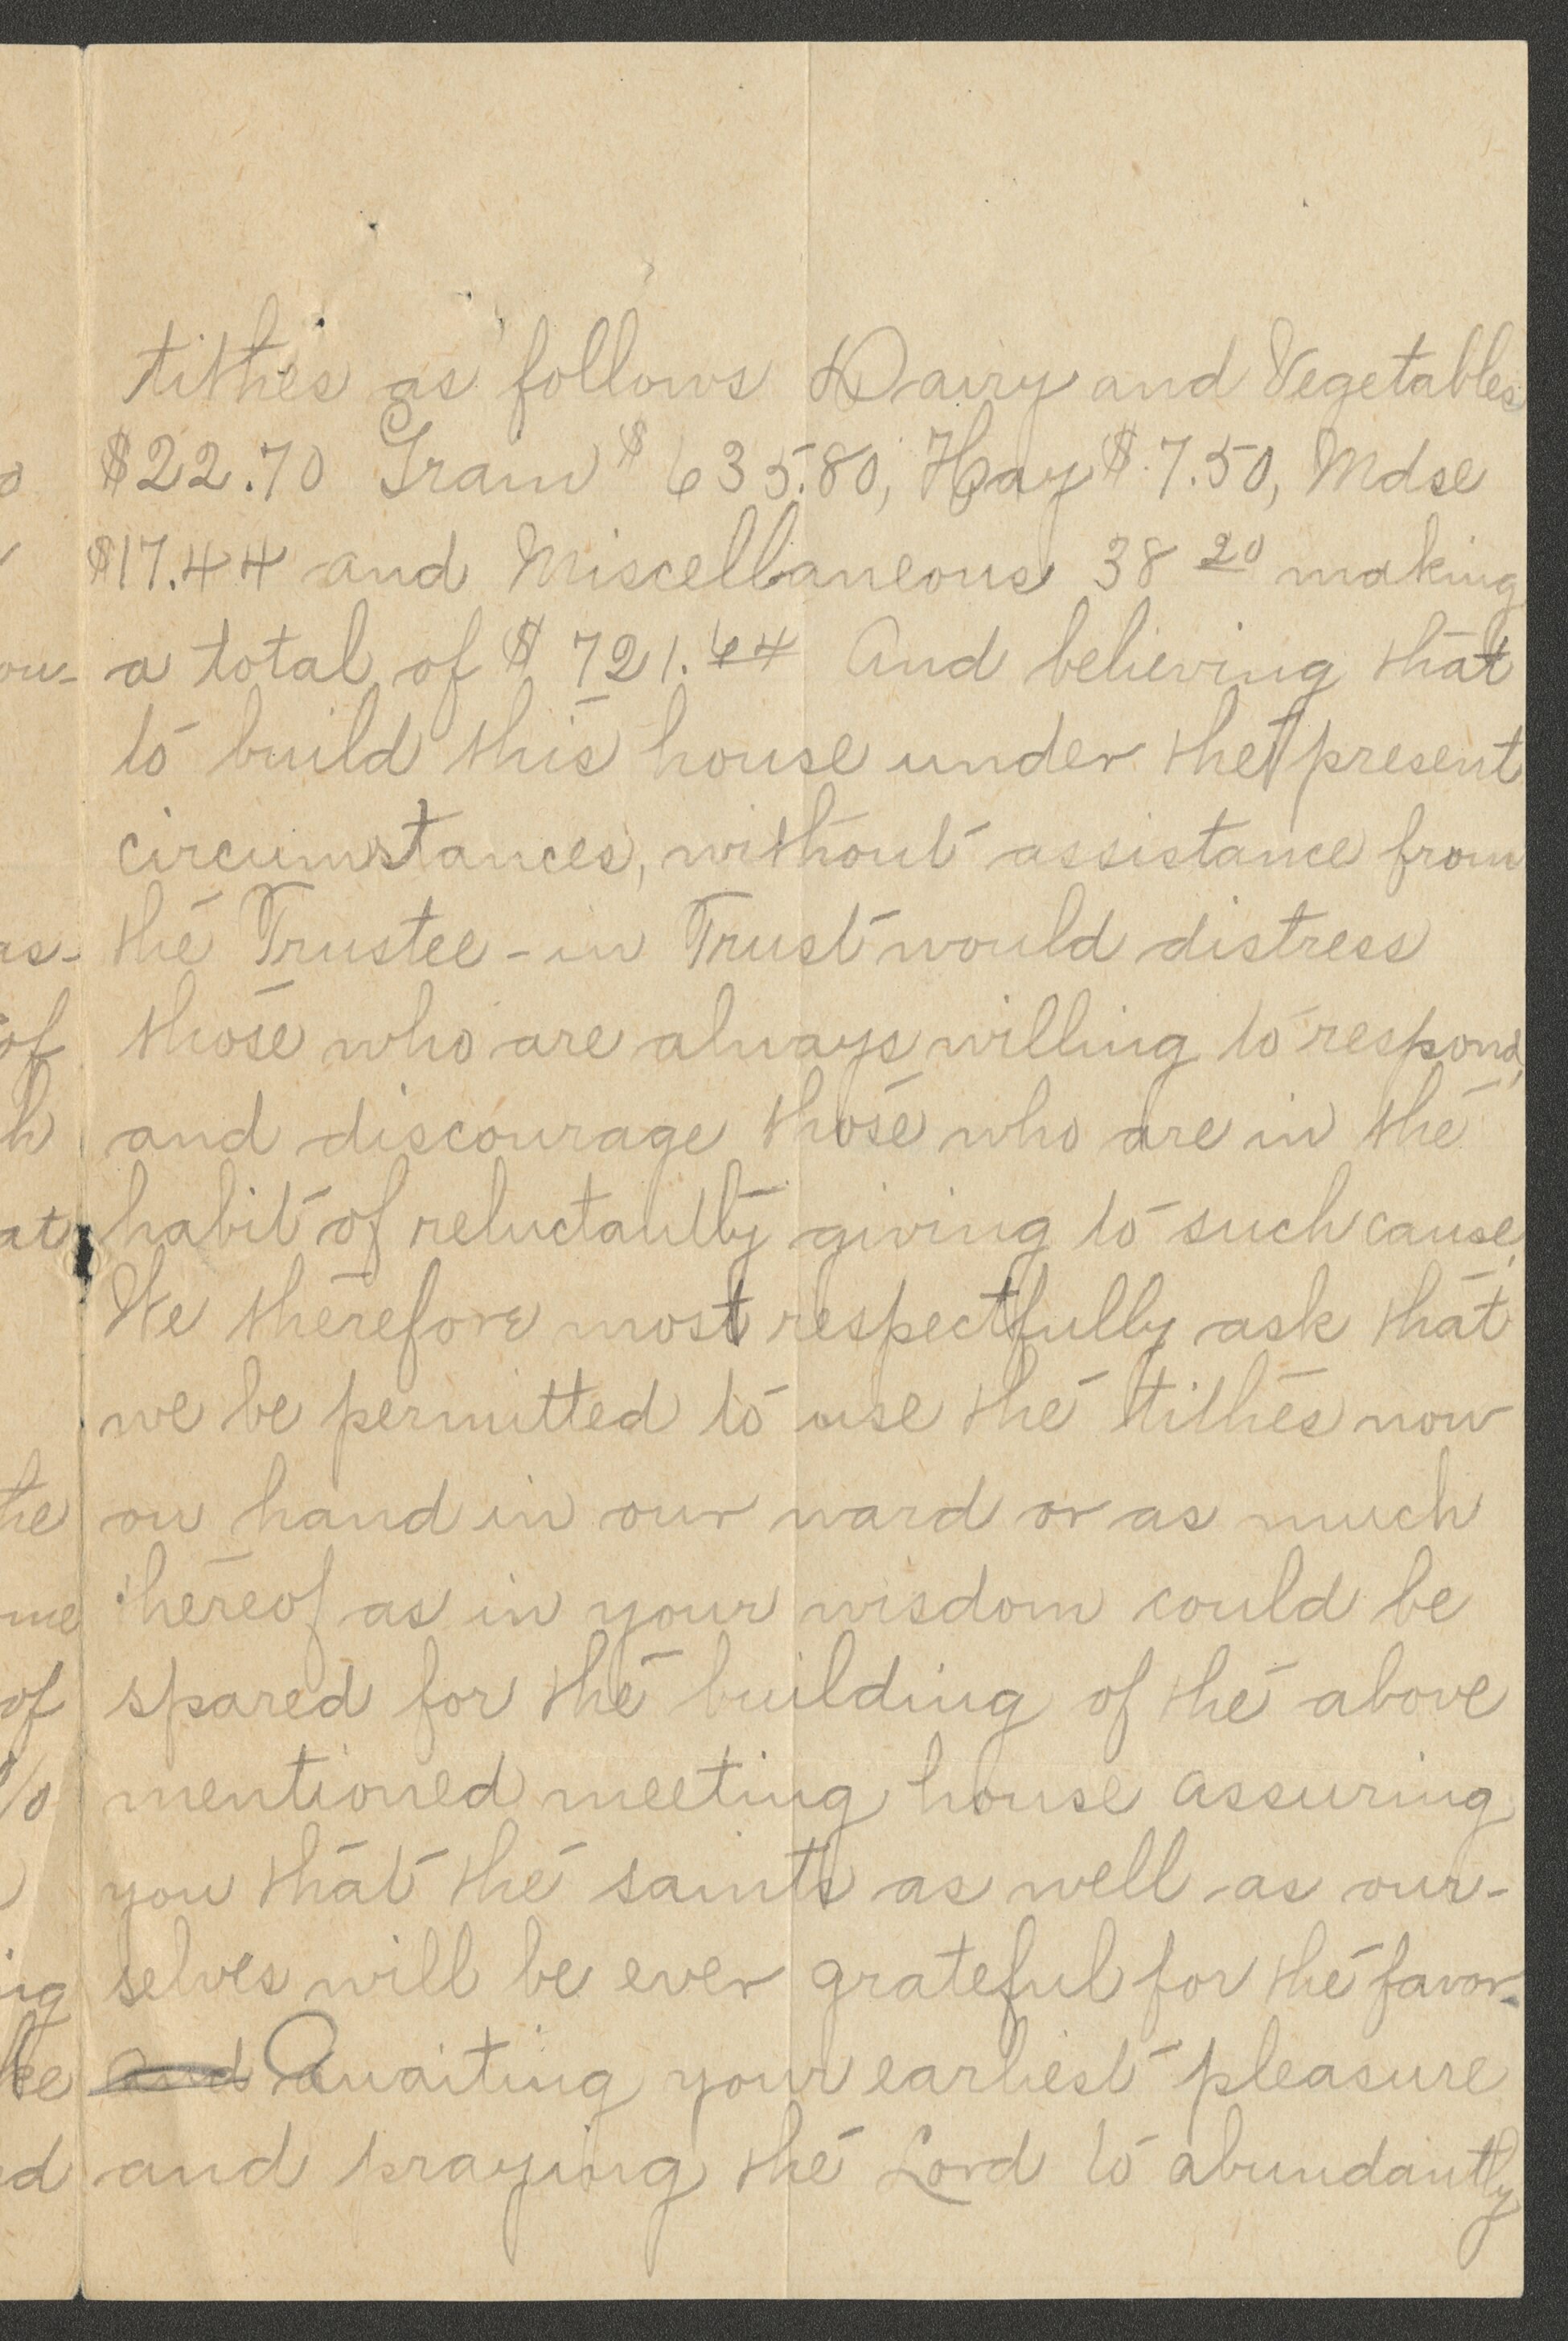 tithes as follows Dairy and Vegetables
$22.70 Grain $ 635.80, Hay $ 7.50, Mdse
$17.44 and Miscellaneous 38 20 making
a total of $ 721.64 And believing that
to build this house under the present
circumstances, without assistance from
the Trustee-in Trust would distress
those who are always willing to respond,
and discourage those who are in the
habit of reluctantly giving to such cause.
We therefore most respectfully ask that
we be permitted to use the tithes now
on hand in our ward or as much
thereof as in your wisdom could be
spared for the building of the above
mentioned meeting house assuring
you that the saints as well as our-
selves will be ever grateful for the favor.
and Awaiting your earliest pleasure
and praying the Lord to abundantly